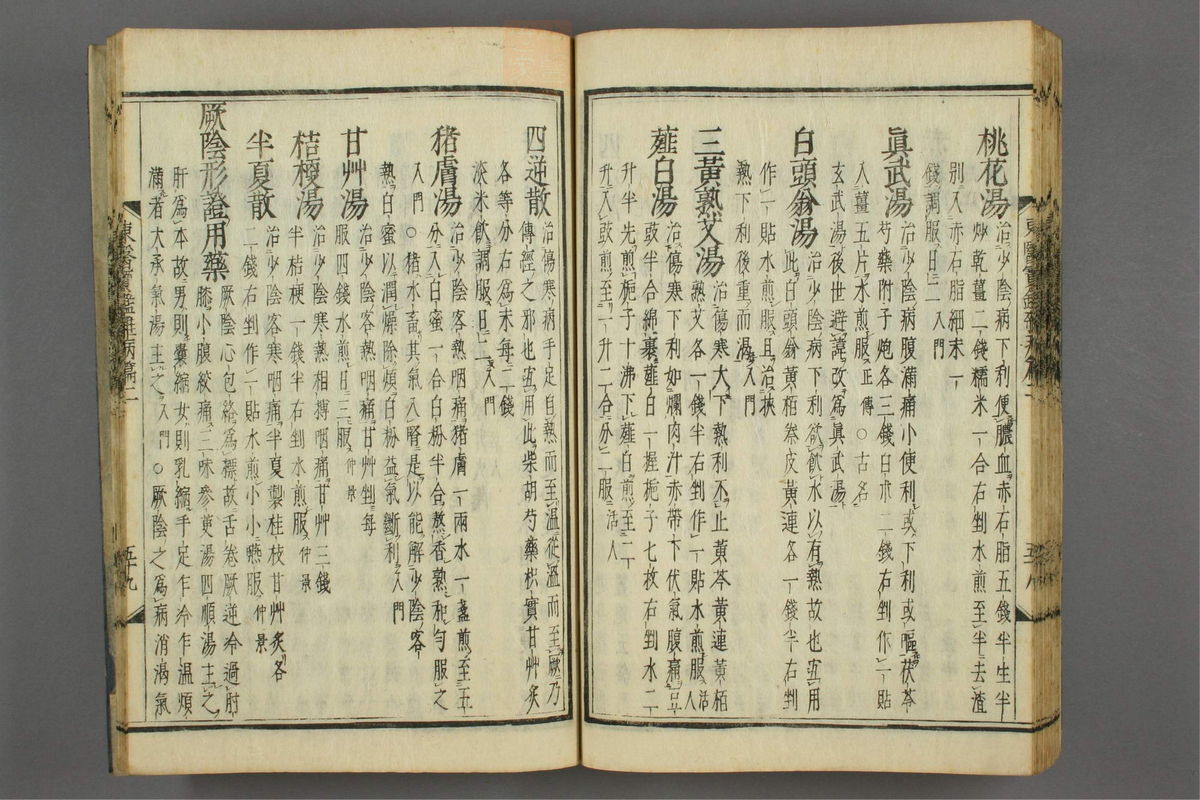 桃花湯治少陰病下利便膿血赤石脂五錢半生半
別入赤石脂細末一
炒乾薑二錢糯米一合右剉水煎至半去渣
錢調服日二入門
眞武湯治少陰病腹滿痛小便利或下利或嘔茯苓
芍藥附子炮各三錢白朮二錢右剉作一貼
入薑五片水煎服正傳○古名
玄武湯後世避諱改爲眞武湯
白頭翁湯治少陰病下利欲飮水以有熱故也宜用
此白頭翁黃栢秦皮黃連各一錢半右剉
作一貼水煎服且治挾
熱下利後重而渴入門
三黃熟艾湯治傷寒大下熱利不止黃芩黃連黃栢
熟艾各一錢半右剉作一貼水煎服活人
薤白湯治傷寒下利如爛肉汁赤帶下伏氣腹痛
豉半合綿裹薤白一握梔子七枚右剉水二
升半先煎梔子十沸下薤白煎至二
升入豉煎至一升二合分二服活人
四逆散治傷寒病手足自熱而至溫從溫而至厥乃
傳經之邪也宜用此柴胡芍藥枳實甘艸炙
各等分右爲末每二錢
淡米飮調服日二入門
猪膚湯治少陰客熱咽痛猪膚一兩水一盞煎至五
分入白蜜一合白粉半合熬香熟和勻服之
入門○猪水畜其氣入腎是以能解少陰客
熱白蜜以潤燥除煩白粉益氣斷利入門
甘艸湯治少陰客熱咽痛甘艸剉每
服四錢水煎日三服仲景
桔梗湯治少陰寒熱相搏咽痛甘艸三錢
半桔梗一錢半右剉水煎服仲景
半夏散治少陰客寒咽痛半夏製桂枝甘艸炙各
二錢右剉作一貼水煎小小嚥服仲景
厥陰形證用藥厥陰心包絡爲標故舌卷厥逆冷過肘
膝小腹絞痛三味參萸湯四順湯主之
肝爲本故男則囊縮女則乳縮手足乍冷乍溫煩
滿者大承氣湯主之入門○厥陰之爲病消渴氣
東醫寶鑑雜病篇二
五十九